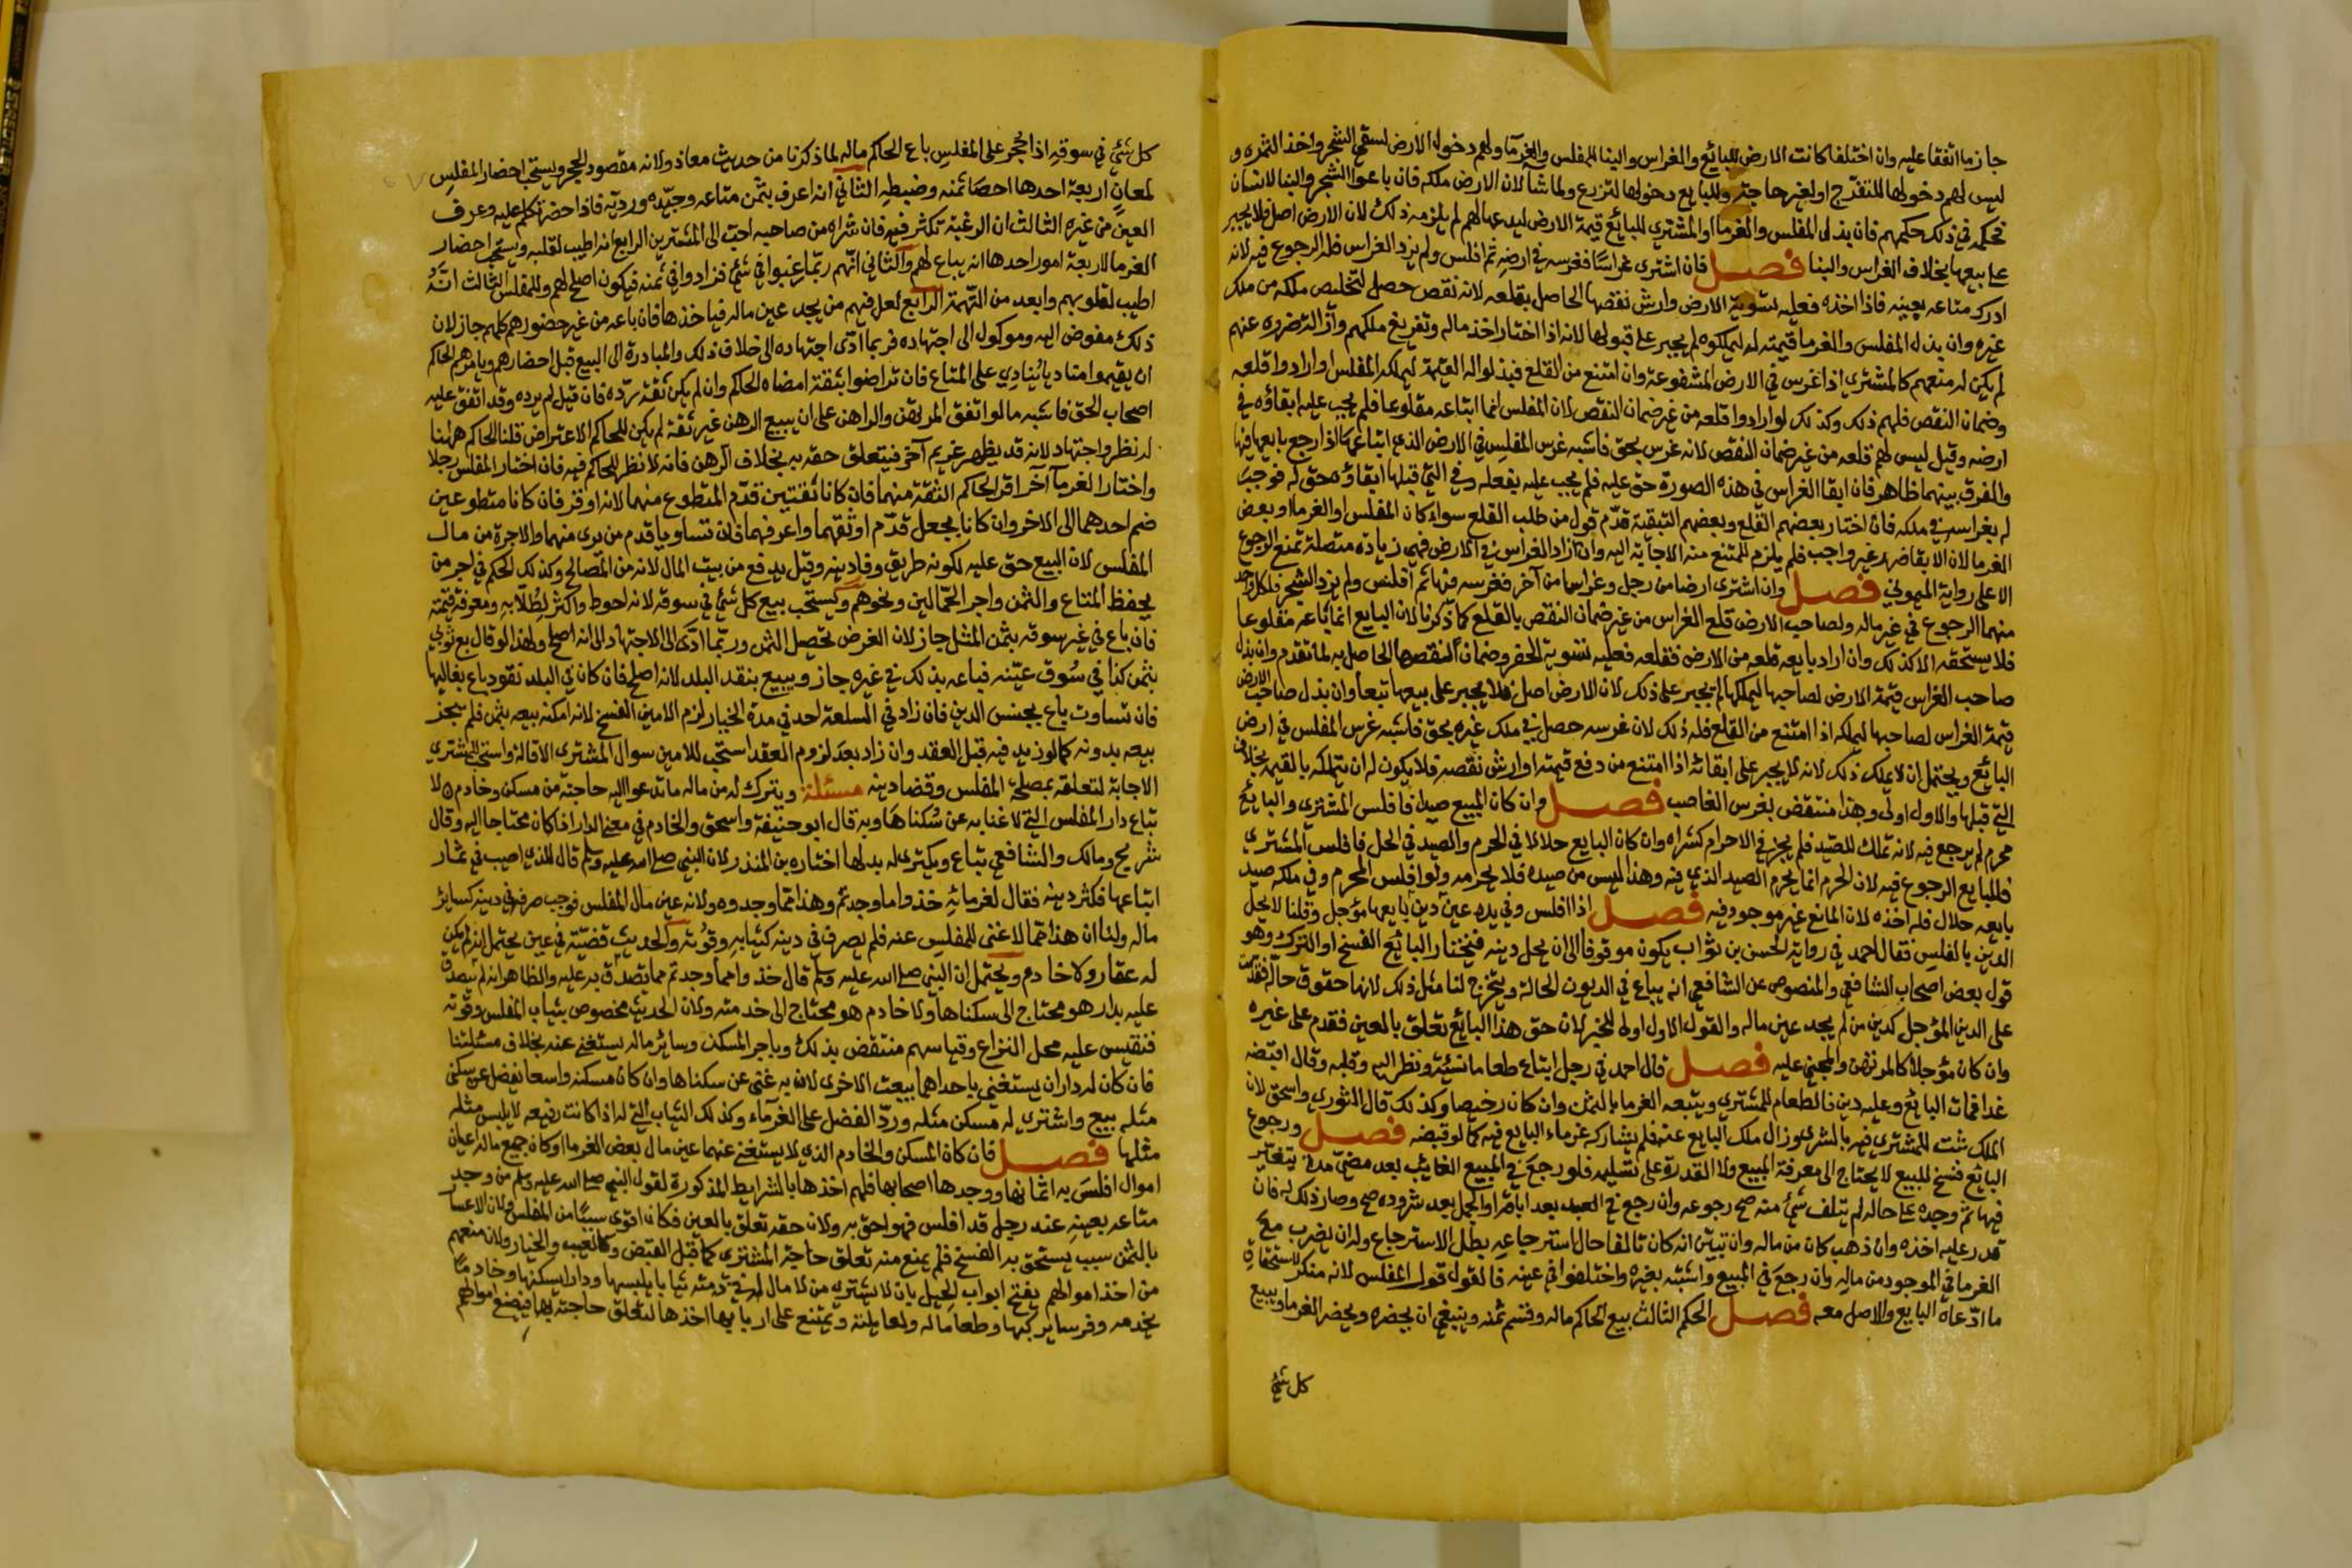 جاز ما اتفقا عليه وان اختلفا كانت الارض للبائع والغراس والبنا للمفلس والغرمآ ولهم دخول الارض لسقي الشجر واخذ الثمرة و
ليس لهم دخولها للتفرج او لغير حاجة وللبايع دخولها للزرع ولما شآ لان الارض ملكه فان باعوا الشجر والبنا لانسان
فحكمه في ذلك حكمهم فان بذل المفلس والغرما او المشتري للبائع قيمة الارض ليدعها لهم لم يلزمه ذلك لان الارض اصل فلا يجبر
على بيعها بخلاف الغراس والبنا فصل فان اشترى غراسًا فغرسه في ارضه ثم افلس ولم يزد الغراس فله الرجوع فيه لانه
ادرك متاعه بعينه فاذا اخذه فعليه تسوية الارض وارش نقصها الحاصل بقلعه لانه نقص حصل لتخليص ملكه من ملك
غيره وان بذل المفلس والغرما قيمته له ليملكوه لم يجبر على قبولها لانه اذا اختار اخذ ماله وتفريغ ملكهم وازالة ضرره عنهم
لم يكن له منعهم كالمشتري اذا غرس في الارض المشفوعة وان امتنع من القلع فبذلوا له القيمة ليملكه المفلس او ارادوا قلعه
وضمان النقص فلهم ذلك وكذلك لو ارادوا قلعه من غير ضمان النقص لان المفلس انما ابتاعه مقلوعا فلم يجب عليه ابقاؤه في
ارضه وقيل ليس لهم قلعه من غير ضمان النقص لانه غرس بحق فاشبه غرس المفلس في الارض الذي ابتاعها اذا رجع بايعها فيها
والفرق بينهما ظاهر فان ابقا الغراس في هذه الصورة حق عليه فلم يجب عليه بفعله وفي التي قبلها ابقاؤه حق له فوجب
له بغراسه في ملكه فان اختار بعضهم القلع وبعضهم التبقية قدّم قول من طلب القلع سواء كان المفلس او الغرما او بعض
الغرما لان الابقا ضرر غير واجب فلم يلزم الممتنع منه الاجابة اليه وان زاد الغراس في الارض فهي زيادة متصلة تمنع الرجوع
الا على رواية الميموني فصل وان اشترى ارضا من رجل وغراسا من آخر فغرسه فيها ثم افلس ولم يزد الشجر فلكل واحد
منهما الرجوع في عين ماله ولصاحب الارض قلع الغراس من غير ضمان النقص بالقلع كما ذكرنا لان البايع انما باعه مقلوعا
فلا يستحقه الا كذلك وان اراد بايعه قلعه من الارض فقلعه فعليه تسوية الحفر وضمان النقصها الحاصل به لما تقدم وان بذل
صاحب الغراس قيمة الارض لصاحبها ليملكها لم يجبر على ذلك لان الارض اصل فلا يجبر على بيعها تبعا وان بذل صاحب الارض
قيمة الغراس لصاحبها ليملكه اذا امتنع من القلع فله ذلك لان غرسه حصل في ملك غيره بحق فاشبه غرس المفلس في ارض
البائع ويحتمل ان لا يملك ذلك لانه لا يجبر على ابقائه اذا امتنع من دفع قيمته او ارش نقصه فلا يكون له ان يتملكه بالقيمة بخلاف
التي قبلها والاول اولى وهذا منتقض بغرس الغاصب فصل وان كان المبيع صيدا فافلس المشتري والبايع
محرم لم يرجع فيه لانه تملك للصيد فلم يجز في الاحرام كشراه وان كان البايع حلالا في الحرم والصيد في الحل فافلس المشتري
فللبايع الرجوع فيه لان الحرم انما يحرم الصيد الذي فيه وهذا ليس من صيده فلا يحرمه ولو افلس المحرم وفي ملكه صيد
بايعه حلال فله اخذه لان المانع غير موجود فيه فصل اذا افلس وفي يده عين دين بايعها مؤجل وقلنا لا يحل
الدين بالفلس فقال احمد في رواية الحسن بن ثواب يكون موقوفا الى ان يحل دينه فيختار البائع الفسخ او الترك وهو
قول بعض اصحاب الشافعي والمنصوص عن الشافعي انه يباع في الديون الحالة ويتخرج لنا مثل ذلك لانها حقوق حالة فقدمت
على الدين المؤجل كدين من لم يجد عين ماله والقول الاول اولى للخبر لان حق هذا البائع تعلق بالعين فقدم على غيره
وان كان مؤجلا كالمرتهن والمجني عليه فصل قال احمد في رجل ابتاع طعاما نسيئة ونظر اليه وقلبه وقال اقبضه
غدا فمات البائع وعليه دين فالطعام للمشتري ويتبعه الغرما بالثمن وان كان رخيصا وكذلك قال الثوري واسحق لان
الملك ثبت للمشتري فيه بالشرى وزال ملك البايع عنه فلم يشاركه غرماء البايع فيه كما لو قبضه فصل ورجوع
البائع فسخ للبيع لا يحتاج الى معرفة المبيع ولا القدرة على تسليمه فلو رجع في المبيع الغايب بعد مضي مدة يتغير
فيها ثم وجده على حاله لم يتلف شئ منه صح رجوعه وان رجع في العبد بعد اباقه او الجمل بعد شروده صح وصار ذلك له فان
قدر عليه اخذه وان ذهب كان من ماله وان تبين انه كان تالفا حال استرجاعه بطل الاسترجاع وله ان يضرب مع
الغرما في الموجود من ماله وان رجع في المبيع واشتبه بغيره واختلفوا في عينه فالقول قول المفلس لانه منكر لاستحقاق
ما ادّعاه البايع والاصل معه فصل الحكم الثالث بيع الحاكم ماله وقسم ثمنه وينبغي ان يحضره ويحضر الغرما ويبيع
كل شئ
كل شئ في سوقه اذا حجر على المفلس باع الحاكم ماله لما ذكرنا من حديث معاذ ولانه مقصود الحجر ويستحب احضار المفلس
لمعان اربعة احدها احصا ثمنه وضبطه الثاني انه اعرف بثمن متاعه وجيّده ورديّه فاذا حضر تكلم عليه وعرف
العين من غيره الثالث ان الرغبة تكثر فيه فان شراه من صاحبه احب الى المشترين الرابع انه اطيب لقلبه ويستحب احضار
الغرما لاربعة امور احدها انه يباع لهم والثاني انهم ربّما رغبوا في شئ فزادوا في ثمنه فيكون اصلح لهم وللمفلس الثالث انّهُ
اطيب لقلوبهم وابعد من التهمة الرابع لعل فيهم من يجد عين ماله فياخذها فان باعه من غير حضورهم كلهم جاز لان
ذلك مفوض اليه وموكول الى اجتهاده فربما ادّى اجتهاده الى خلاف ذلك والمبادرة الى البيع قبل احضارهم ويامرهم الحاكم
ان يقيموا مناديا يُنادِي على المتاع فان تراضوا بثقة امضاه الحاكم وان لم يكن ثقة ردّه فان قيل لم يرده وقد اتفق عليه
اصحاب الحق فاشبه ما لو اتفق المرتهن والراهن على ان يبيع الرهن غير ثقة لم يكن للحاكم الاعتراض قلنا الحاكم ههنا
له نظر واجتهاد لانه قد يظهر غريم آخر فيتعلق حقه به بخلاف الرهن فانه لا نظر للحاكم فيه فان اختار المفلس رجلا
واختار الغرمآ آخر اقر الحاكم الثقة منهما فان كانا ثقتين قدّم المتطوع منهما لانه اوفر فان كانا متطوعين
ضم احدهما الى الاخر وان كانا بجعل قدّم اوثقهما واعرفهما فان تساويا قدم من يرى منهما والاجرة من مال
المفلس لان البيع حق عليه لكونه طريق وفا دينه وقيل يدفع من بيت المال لانه من المصالح وكذلك الحكم في اجر من
يحفظ المتاع والثمن واجر الحمّالين ونحوهم ويستحب بيع كل شئ في سوقه لانه احوط واكثر لطُلّابِهِ ومعرفة قيمته
فان باع في غير سوقه بثمن المثل جاز لان الغرض تحصيل الثمن وربّما ادّى الاجتهاد الى انه اصلح ولهذا لو قال بع ثوبي
بثمن كذا في سُوق عيّنه فباعه بذلك في غيره جاز ويبيع بنقد البلد لانه اصلح فان كان في البلد نقود باع بغالبها
فان تساوت باع بجنس الدين فان زاد في السلعة احد في مدة الخيار لزم الامين الفسخ لانه امكنه بيعه بثمن فلم يجز
بيعه بدونه كما لو زيد فيه قبل العقد وان زاد بعد لزوم العقد استحب للامين سوال المشتري الاقالة واستحب للمشتري
الاجابة لتعلقه بمصلحة المفلس وقضا دينه مسئلة ويترك له من ماله ما تدعوا اليه حاجته من مسكن وخادم لا
تباع دار المفلس التي لا غنا به عن سُكناها وبه قال ابو حنيفة واسحق والخادم في معنى الدار اذا كان محتاجا اليه وقال
شريح ومالك والشافعي تباع ويكترى له بدلها اختاره بن المنذر لان النبي صلى الله عليه وسلم قال للذي اصيب في ثمار
ابتاعها فكثر دينه فقال لغرمائه خذوا ما وجدتم وهذا مما وجدوه ولانه عين مال المفلس فوجب صرفه في دينه كسائر
ماله ولنا ان هذا مما لا غنى للمفلس عنه فلم يصرف في دينه كثيابه وقُوته والحديث قضيّة في عين يحتمل انه لم يكن
له عقار ولا خادم ويحتمل ان النبي صلى الله عليه وسلم قال خذوا مما وجدتم مما تصدق به عليه والظاهر انه لم يتصدق
عليه بدار هو محتاج الى سكناها ولا خادم هو محتاج الى خدمته ولان الحديث مخصوص بثياب المفلس وقوته
فنقيس عليه محل النزاع وقياسهم منتقض بذلك وباجر المسكن وسائر ماله يستغنى عنه بخلاف مسئلتنا
فان كان له داران يستغني باحداهما بيعت الاخرى لان به غنى عن سكناها وان كان مسكنه واسعا يفضل عن سكنى
مثله بيع واشتري له مسكن مثله وردّ الفضل على الغرمآء وكذلك الثياب التي له اذا كانت رفيعه لا يلبس مثله
مثلها فصل فان كان المسكن والخادم الذي لا يستغنى عنهما عين مال بعض الغرما او كان جميع ماله اعيان
اموال افلس به اثمانها ووجدها اصحابها فلهم اخذها بالشرايط المذكورة لقول النبي صلى الله عليه وسلم من وجد
متاعه بعينهِ عند رجل قد افلس فهو احق به ولان حقه تعلق بالعين فكان اقوى سببًا من المفلس ولان الاعسار
بالثمن سبب يستحق به الفسخ فلم يمنع منه تعلق حاجة المشتري كما قبل القبض وكالعيب والخيار ولان منعهم
من اخذ اموالهم يفتح ابواب الحيل بان لا يشتري من لا مال له في ذمته ثيابا يلبسها ودارا يسكنها وخادمًا
يخدمه وفرسا يركبها وطعاما له ولعايلته ويمتنع على اربابها اخذها لتعلق حاجته بها فيضيع اموالهم